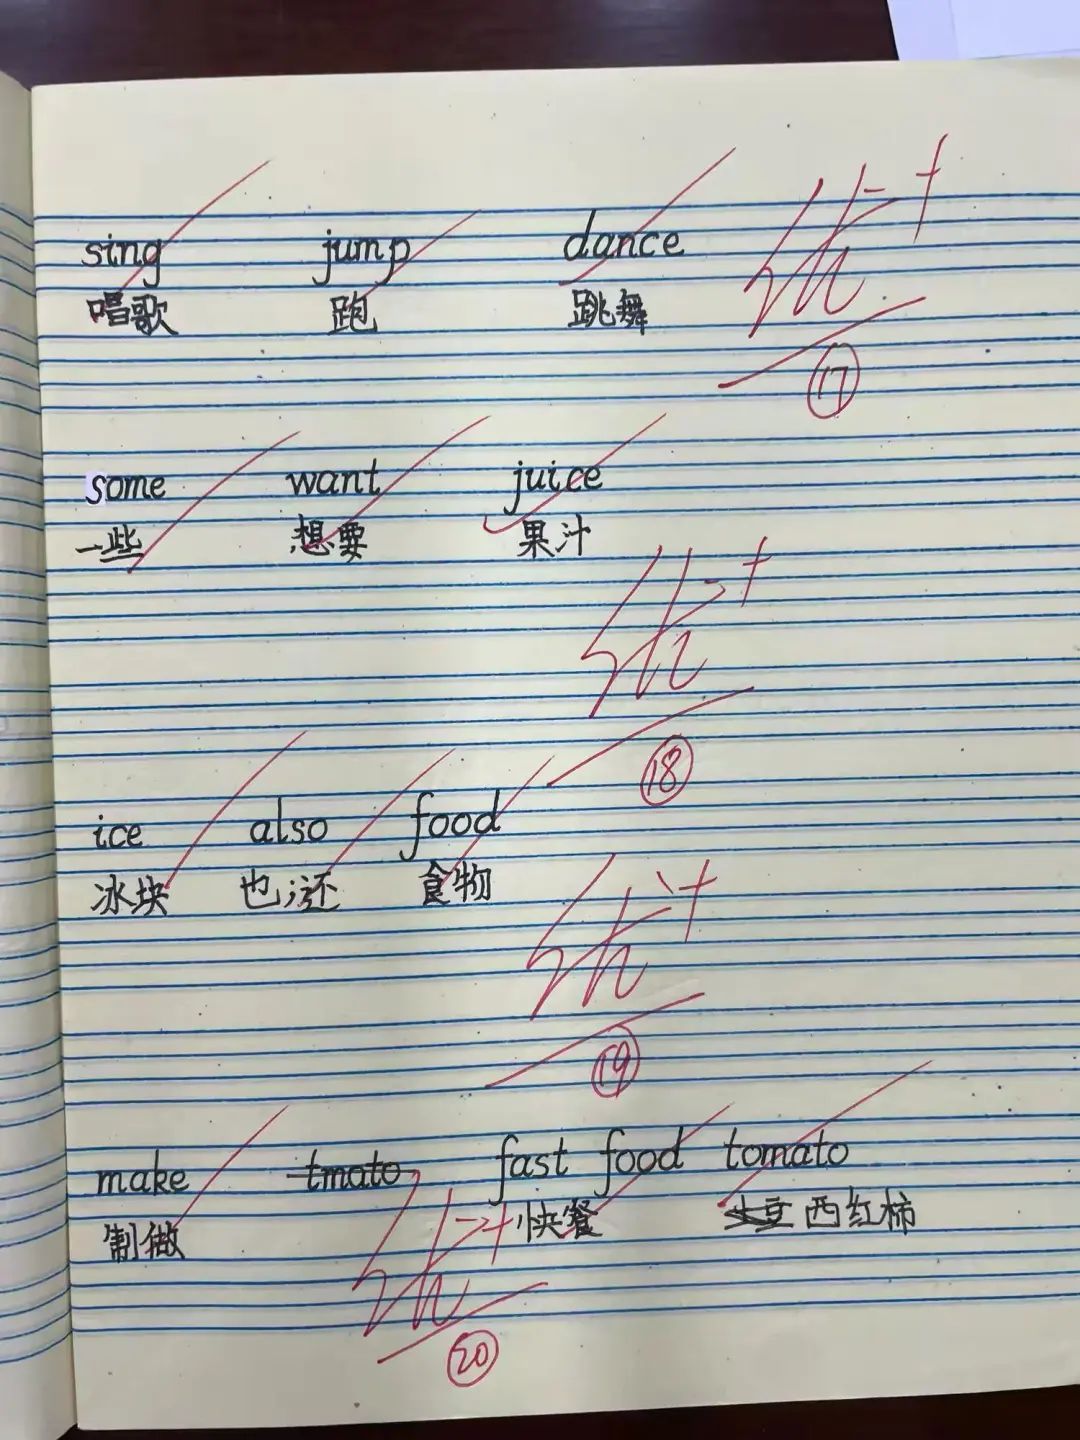 sing jump dance
唱歌 跑 跳舞
17
some want juice
一些 想要 果汁
18
ice also food
冰块 也;还 食物
19
make tmato fast food tomato
制做 快餐 土豆 西红柿
20